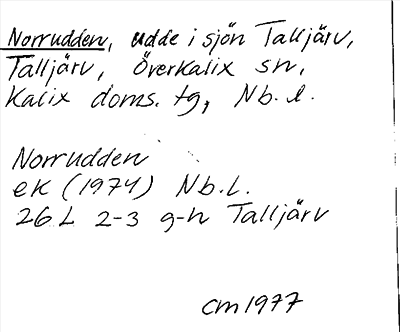 Norrudden, udde i sjön Talljärv,
Talljärv, Överkalix sn,
Kalix doms. tg, Nb. l.
Norrudden
ek (1974) Nb.l.
26 L 2-3 g-h Talljärv
cm 1977